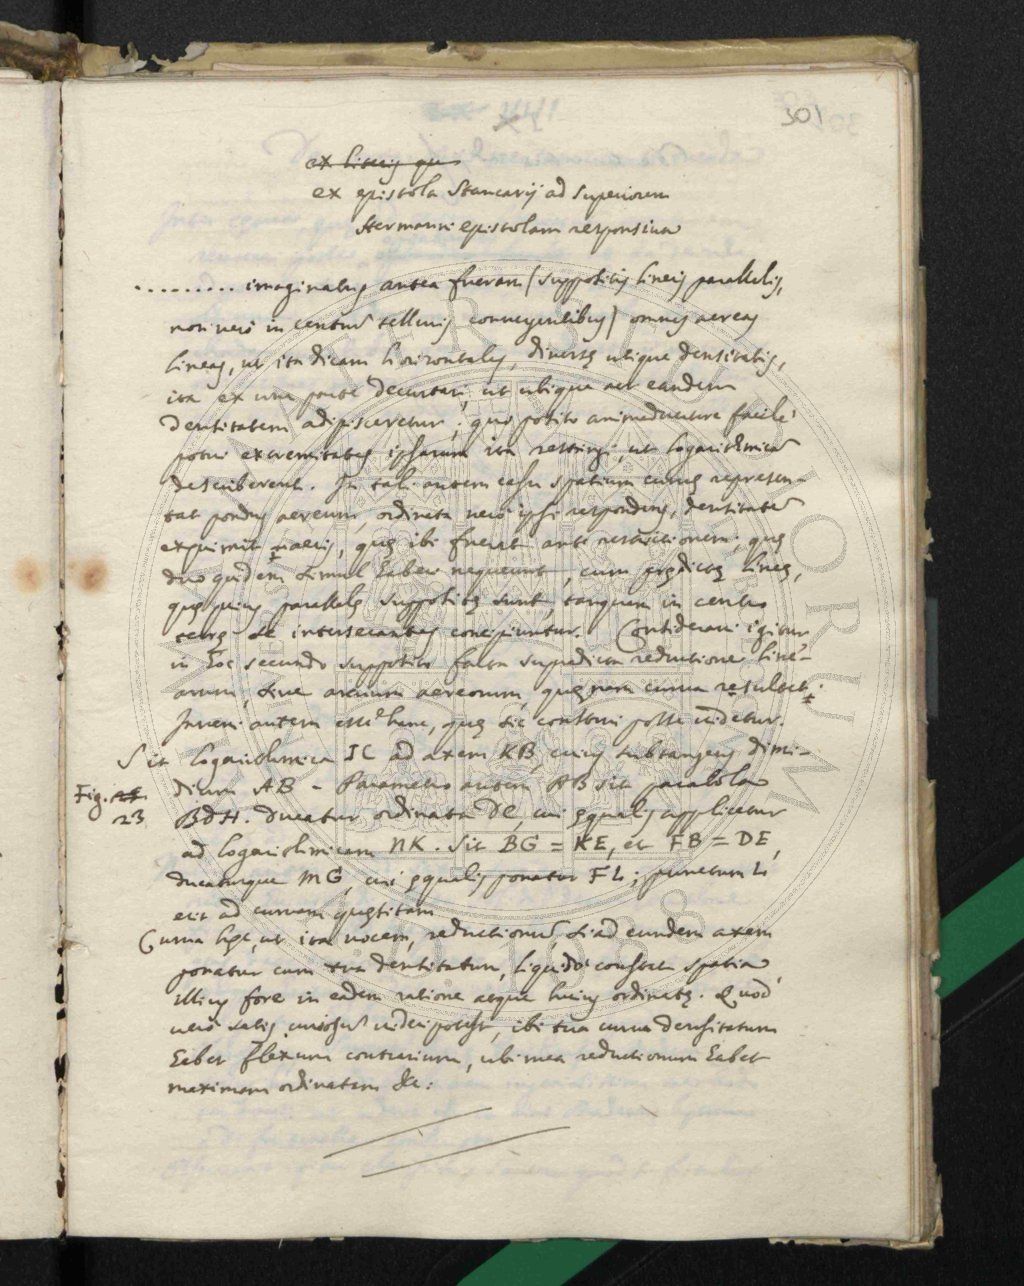 301
ex literis qu
ex epistola Stancarij ad superiorem
Hermanni epistolam responsiva
......... imaginatus antea fueram (suppositis lineis parallelis,
non vero in centrum telluris convergentibus) omnes aereas
lineas, ut ita dicam horizontales, diversę utique densitatis,
ita ex una parte decurtari, ut ubique aer eandem
densitatem adipisceretur; quo posito animadvertere facile
potui extremitates ipsarum ita restringi, ut logarithmicam
describerent. In tali autem casu spatium curvę represen-
tat pondus aereum, ordinata vero ipsi respondens, densitatem
exprimit aeris, quę ibi fuerat ante restrictionem; quę
duo quidem simul haberi nequeunt, cum prędictę lineę,
quę prius parallelę suppositę sunt, tanquam in centro
terrę se intersecantes concipiuntur. Consideravi igitur
in hoc secundo supposito facta supradicta reductione line-
arum, sive arcuum aereorum, quęnam curva resultet;
Inveni autem esse hanc, quę sic construi posse videtur.
Sit logarithmica IC ad axem KB, cuius subtangens dimi-
Fig. 23
dium AB - Parametro autem AB sit parabola
BDH. Ducatur ordinata DE, cui ęqualis applicetur
ad logarithmicam NK. Sit BG = KE, et FB = DE,
ducaturque MG, cui ęqualis ponatur FL; punctum L
erit ad curvam quęsitam
Curva hęc, ut ita vocem, reductionum, si ad eundem axem
ponatur cum tua densitatum, liquido constat spatia
illius fore in eadem ratione atque huius ordinatę. Quod
vero satis curiosum videri potest, ibi tua curva densitatum
habet flexum contrarium, ubi mea reductionum habet
maximam ordinatam &c: